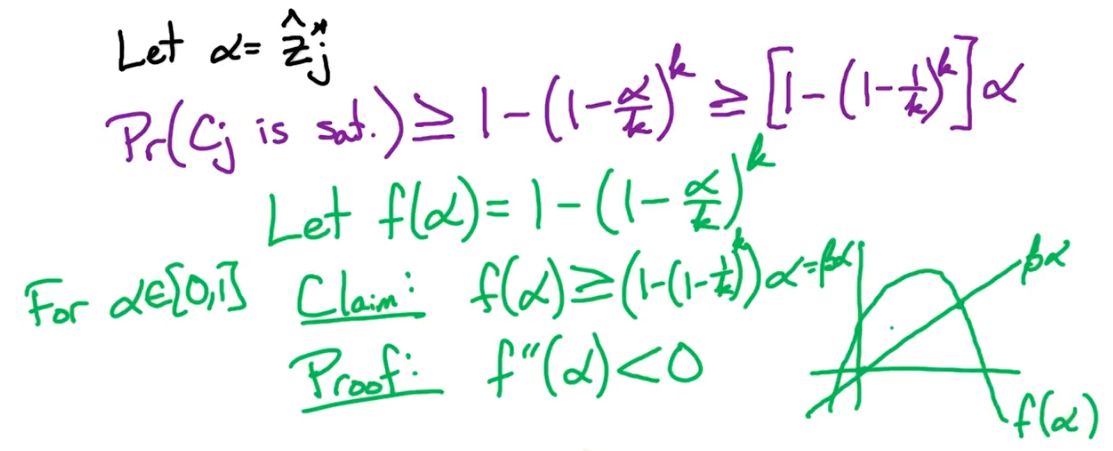 Let α = ẑ*_j
Pr(Cj is sat.) ≥ 1 - (1 - α/k)^k ≥ [1 - (1 - 1/k)^k] α
Let f(α) = 1 - (1 - α/k)^k
For α∈[0,1] Claim: f(α) ≥ (1-(1-1/k)^k) α = βα
βα
Proof: f''(α) < 0
f(α)